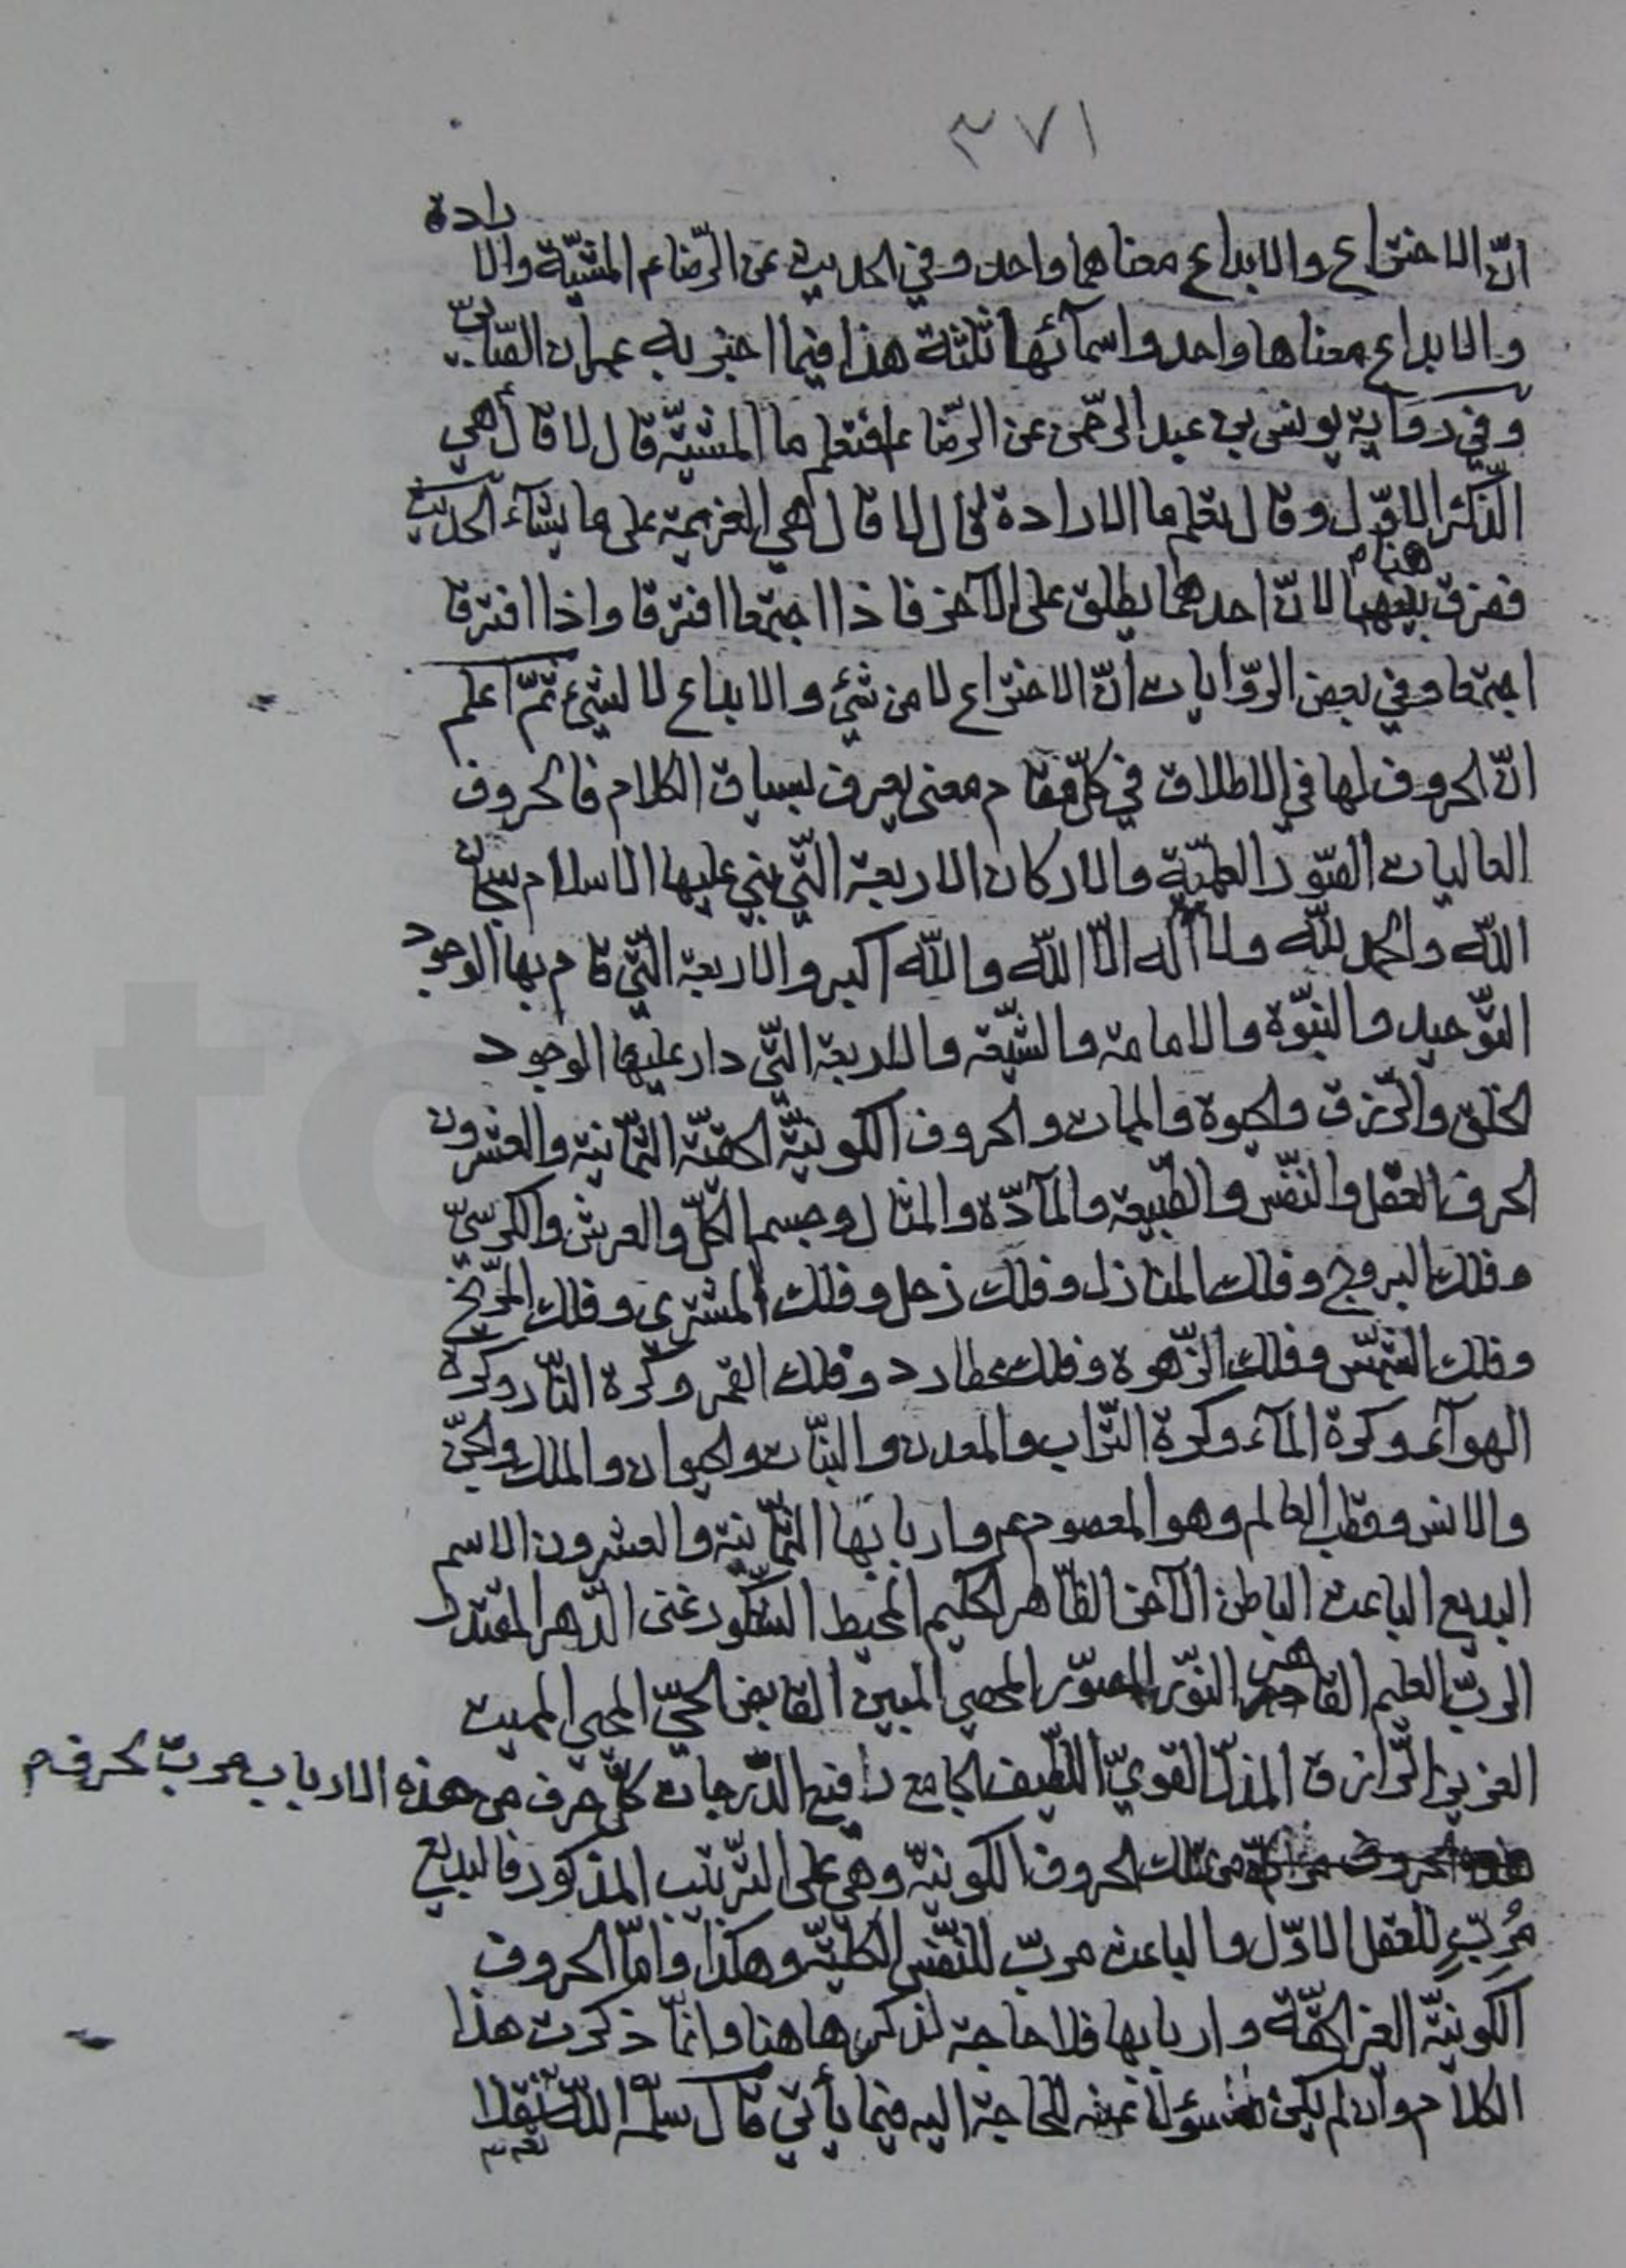 ٣٧١
انّ الاختراع والابداع معناهما واحد وفي الحديث عن الرّضا عم المشيّة والارادة
والابداع معناها واحد واسمآئها ثلثة هذا فيما اخبر به عمران الصّابيّ
وفي رواية يونس بن عبد الرحمن عن الرّضا عم افتعلم ما المشيّة قال لا قال هي
الذّكر الاوّل وقال تعلم ما الارادة قال لا قال هي العزيمة على ما يشآء الحديث
ففرق بينهما هنا لانّ احدهما يطلق على الآخر فاذا اجتمعا افترقا واذا افترقا
اجتمعا وفي بعض الرّوايات انّ الاختراع لا من شئ والابداع لا لشئ ثمّ اعلم
انّ الحروف لها في الاطلاق في كلّ مقام معنى يعرف بسياق الكلام فالحروف
العاليات الصّور العلميّة والاركان الاربعة الّتي بني عليها الاسلام سبحان
اللّه والحمد للّه ولا اله الّا اللّه واللّه اكبر والاربعة الّتي قام بها الوجود
التّوحيد والنبّوة والامامة والشّيعة والاربعة الّتي دار عليها الوجود
الخلق والرّزق والحيوة والممات والحروف الكونيّة الحقّيّة الثّمانية والعشرون
الحرف العقل والنّفس والطّبيعة والمآدّة والمثال وجسم الكلّ والعرش والكرسيّ
وفلك البروج وفلك المنازل وفلك زحل وفلك المشترى وفلك المرّيخ
وفلك الشّمس وفلك الزّهرة وفلك عطارد وفلك القمر وكرة النّار وكرة
الهوآء وكرة المآء وكرة التّراب والمعدن والنّبات والحيوان والملك والجنّ
والانس وقطب العالم وهو المعصوم عم واربابها الثّمانية والعشرون الاسم
البديع الباعث الباطن الآخر الظّاهر الحكيم المحيط الشّكور غنى الدّهر المقتدر
الربّ العليم القاهر النّور المصوّر المحصي المبين القابض الحيّ المحيي المميت
العزيز الرّازق المذلّ القويّ اللّطيف الجامع رافيع الدّرجات كلّ حرف من هذه الارباب مربّ لحرف م
من تلك الحروف الكونيّة وهي على التّرتيب المذكور فالبديع
مُربٍّ للعقل الاوّل والباعث مربّ للنّفس الكليّة وهكذا وامّا الحروف
الكونيّة الغير الحقّة واربابها فلا حاجة لذكرها هنا وانّما ذكرت هذا
الكلام وان لم يكن مسؤلا عنه للحاجة اليه فيما يأتي قال سلّمه اللّه نقلا